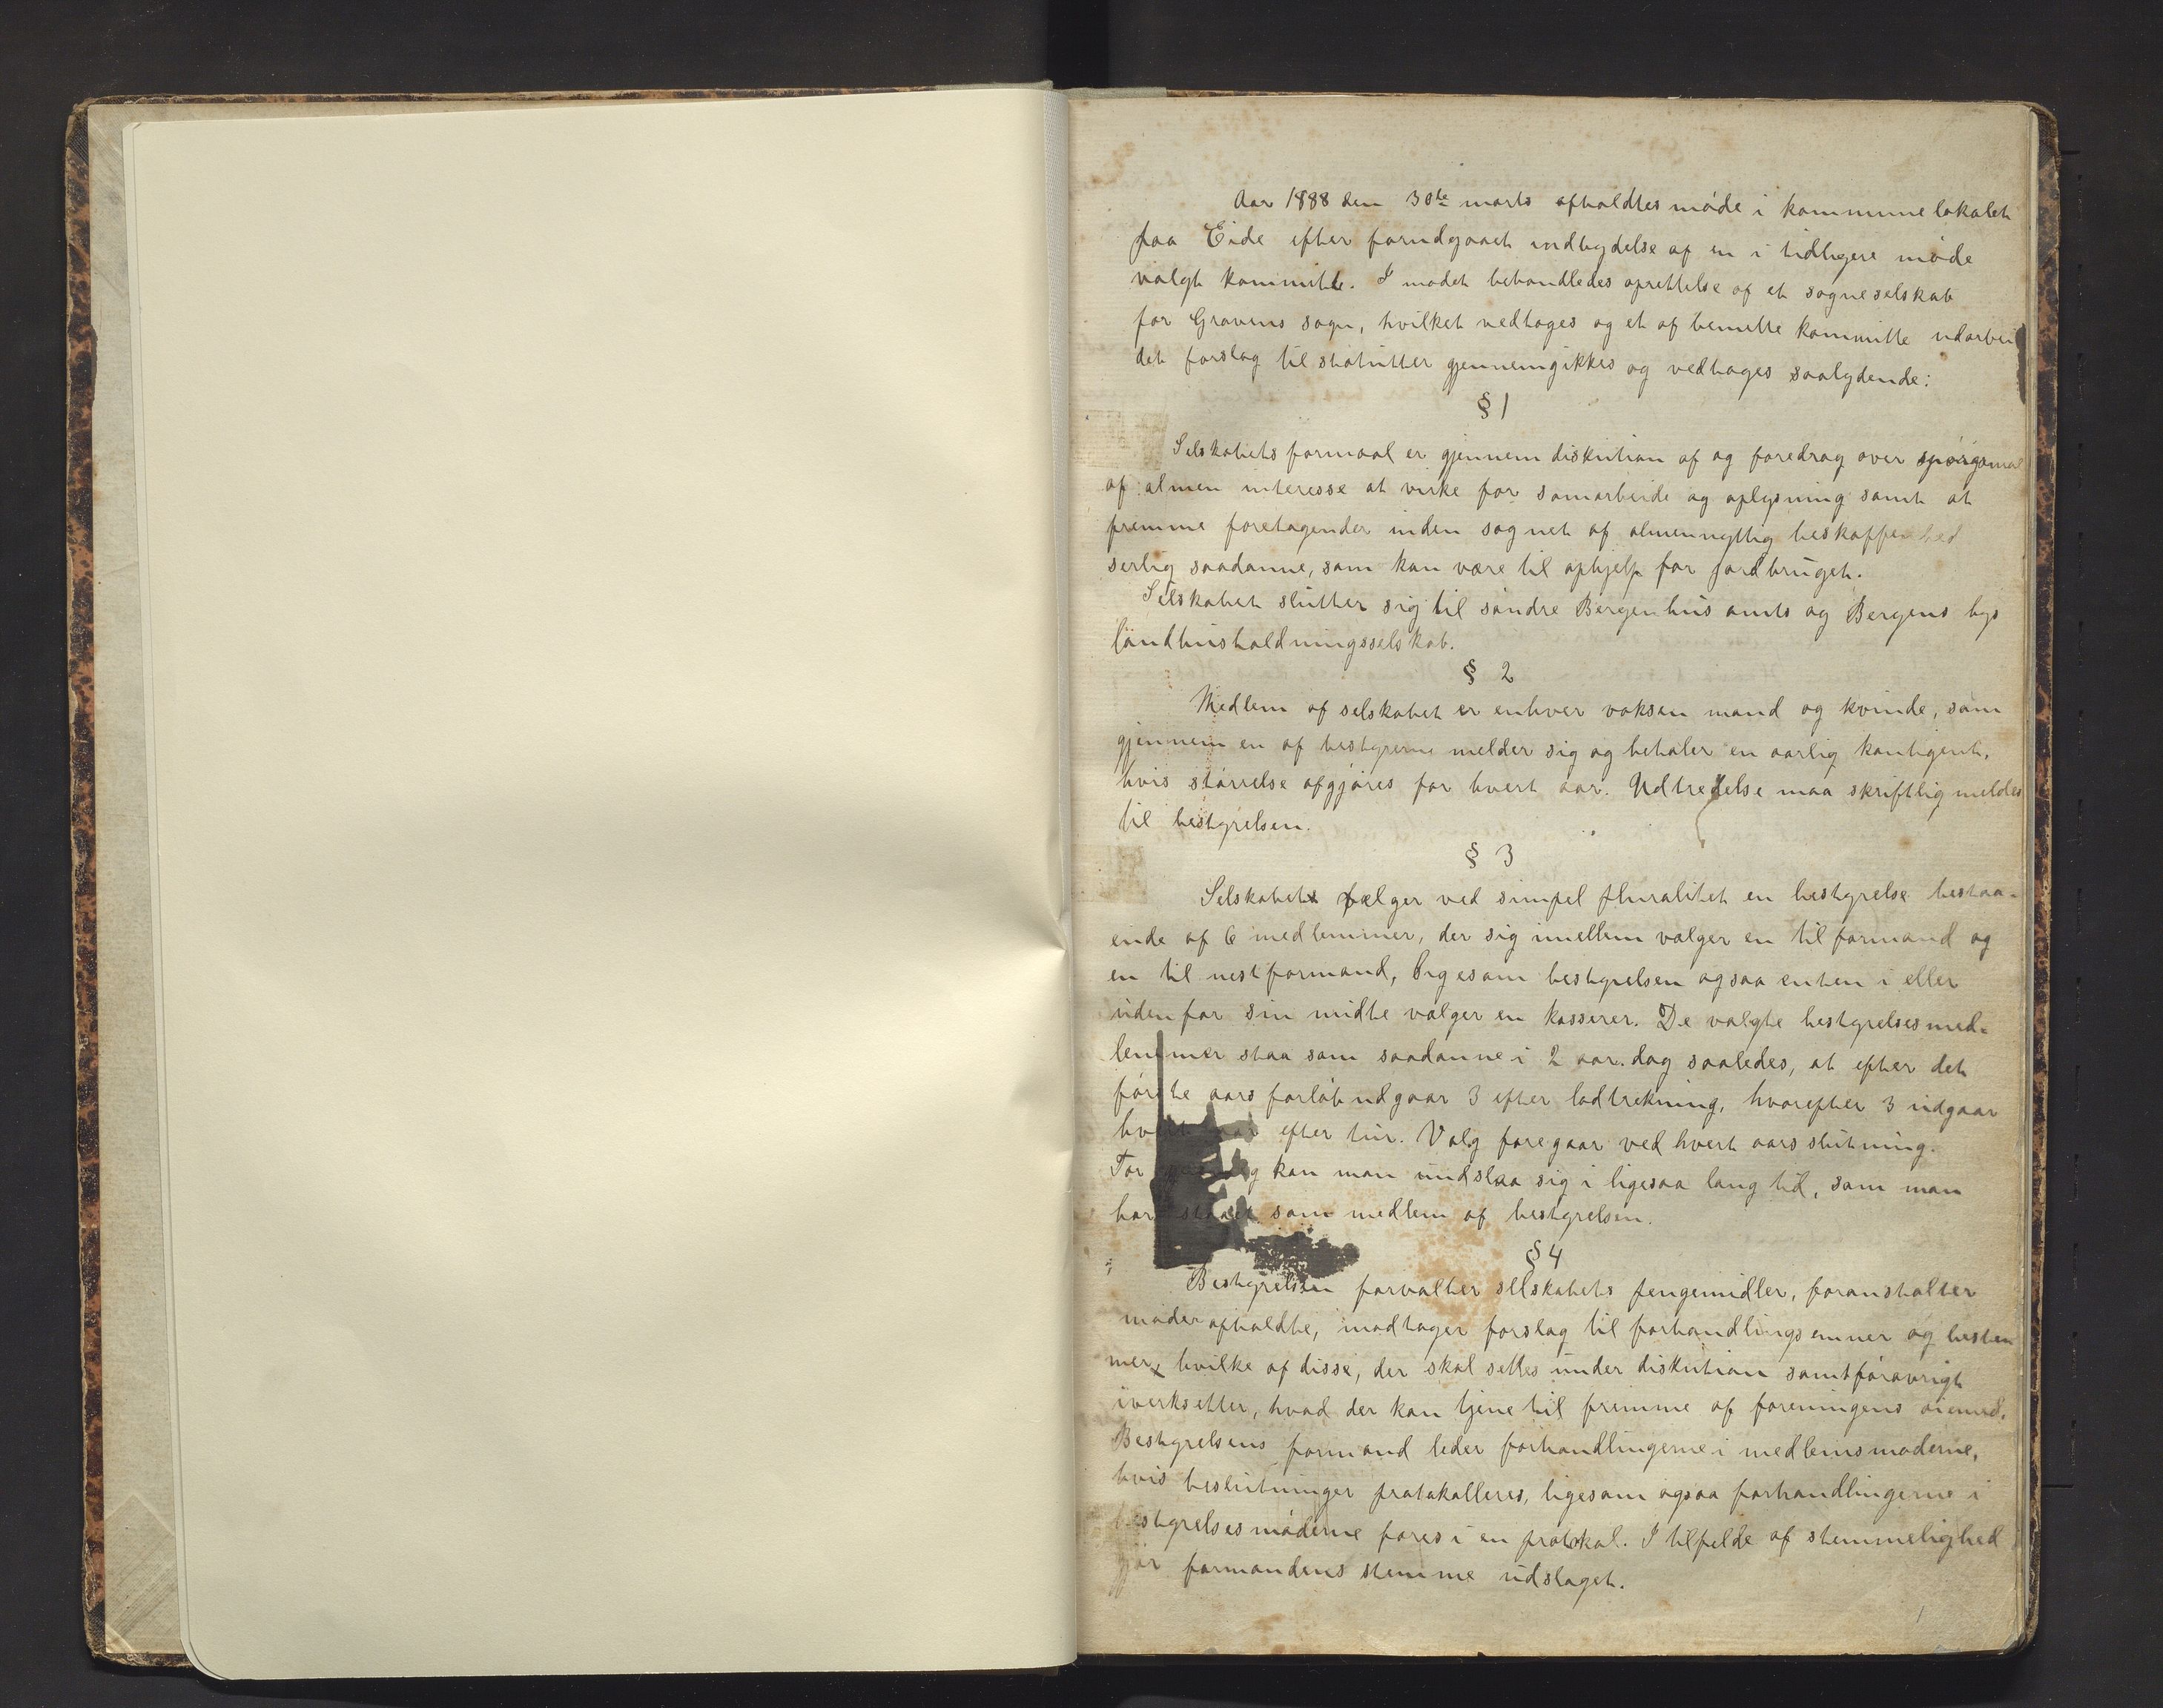 Aar 1888 den 30te marts afholdtes møde i kommunelokalet
paa Eide efter forudgaaet indbydelse af en i tidligere møde
valgt kommitte. I mødet behandledes oprettelse af et sogneselskab
for Gravens sogn, hvilket vedtoges og et af bemelte kommitte udarbei
det forslag til statutter gjennemgikkes og vedtoges saalydende:
§ 1
Selskabets formaal er gjennem diskution af og foredrag over spørgsmaal
af almen interesse at virke for samarbeide og oplysning samt at
fremme foretagender inden sognet af almennyttig beskaffenhed
serlig saadanne, som kan være til ophjelp for jordbruget.
Selskabet slutter sig til søndre Bergenhus amts og Bergens bys
landhusholdningsselskab.
§ 2
Medlem af selskabet er enhver voksen mand og kvinde, som
gjennem en af bestyrerne melder sig og betaler en aarlig kontigent,
hvis størrelse afgjøres for hvert aar. Udtredelse maa skriftlig meldes
til bestyrelsen.
§ 3
Selskabet vælger ved simpel pluralitet en bestyrelse bestaa-
ende af 6 medlemmer, der sig imellem vælger en til formand og
en til nestformand, ligesom bestyrelsen ogsaa enten i eller
uden for sin midte vælger en kasserer. De valgte bestyrelsesmed-
lemmer staa som saadanne i 2 aar. dog saaledes, at efter det
første aars forløb udgaar 3 efter lodtrekning, hvorefter 3 udgaar
hvert aar efter tur. Valg foregaar ved hvert aars slutning.
For kan man undslaa sig i ligesaa lang tid, som man
har staaet som medlem af bestyrelsen.
§ 4
Bestyrelsen forvalter selskabets pengemidler, foranstalter
møder afholdte, modtager forslag til forhandlingsemner og bestem
mer, hvilke af disse, der skal settes under diskution samt forøvrigt
iverksetter, hvad der kan tjene til fremme af foreningens øiemed.
Bestyrelsens formand leder forhandlingerne i medlemsmøderne,
hvis beslutninger protokolleres, ligesom ogsaa forhandlingerne i
bestyrelsesmøderne føres i en protokol. I tilfelde af stemmelighed
gjør formandens stemme udslaget.
1